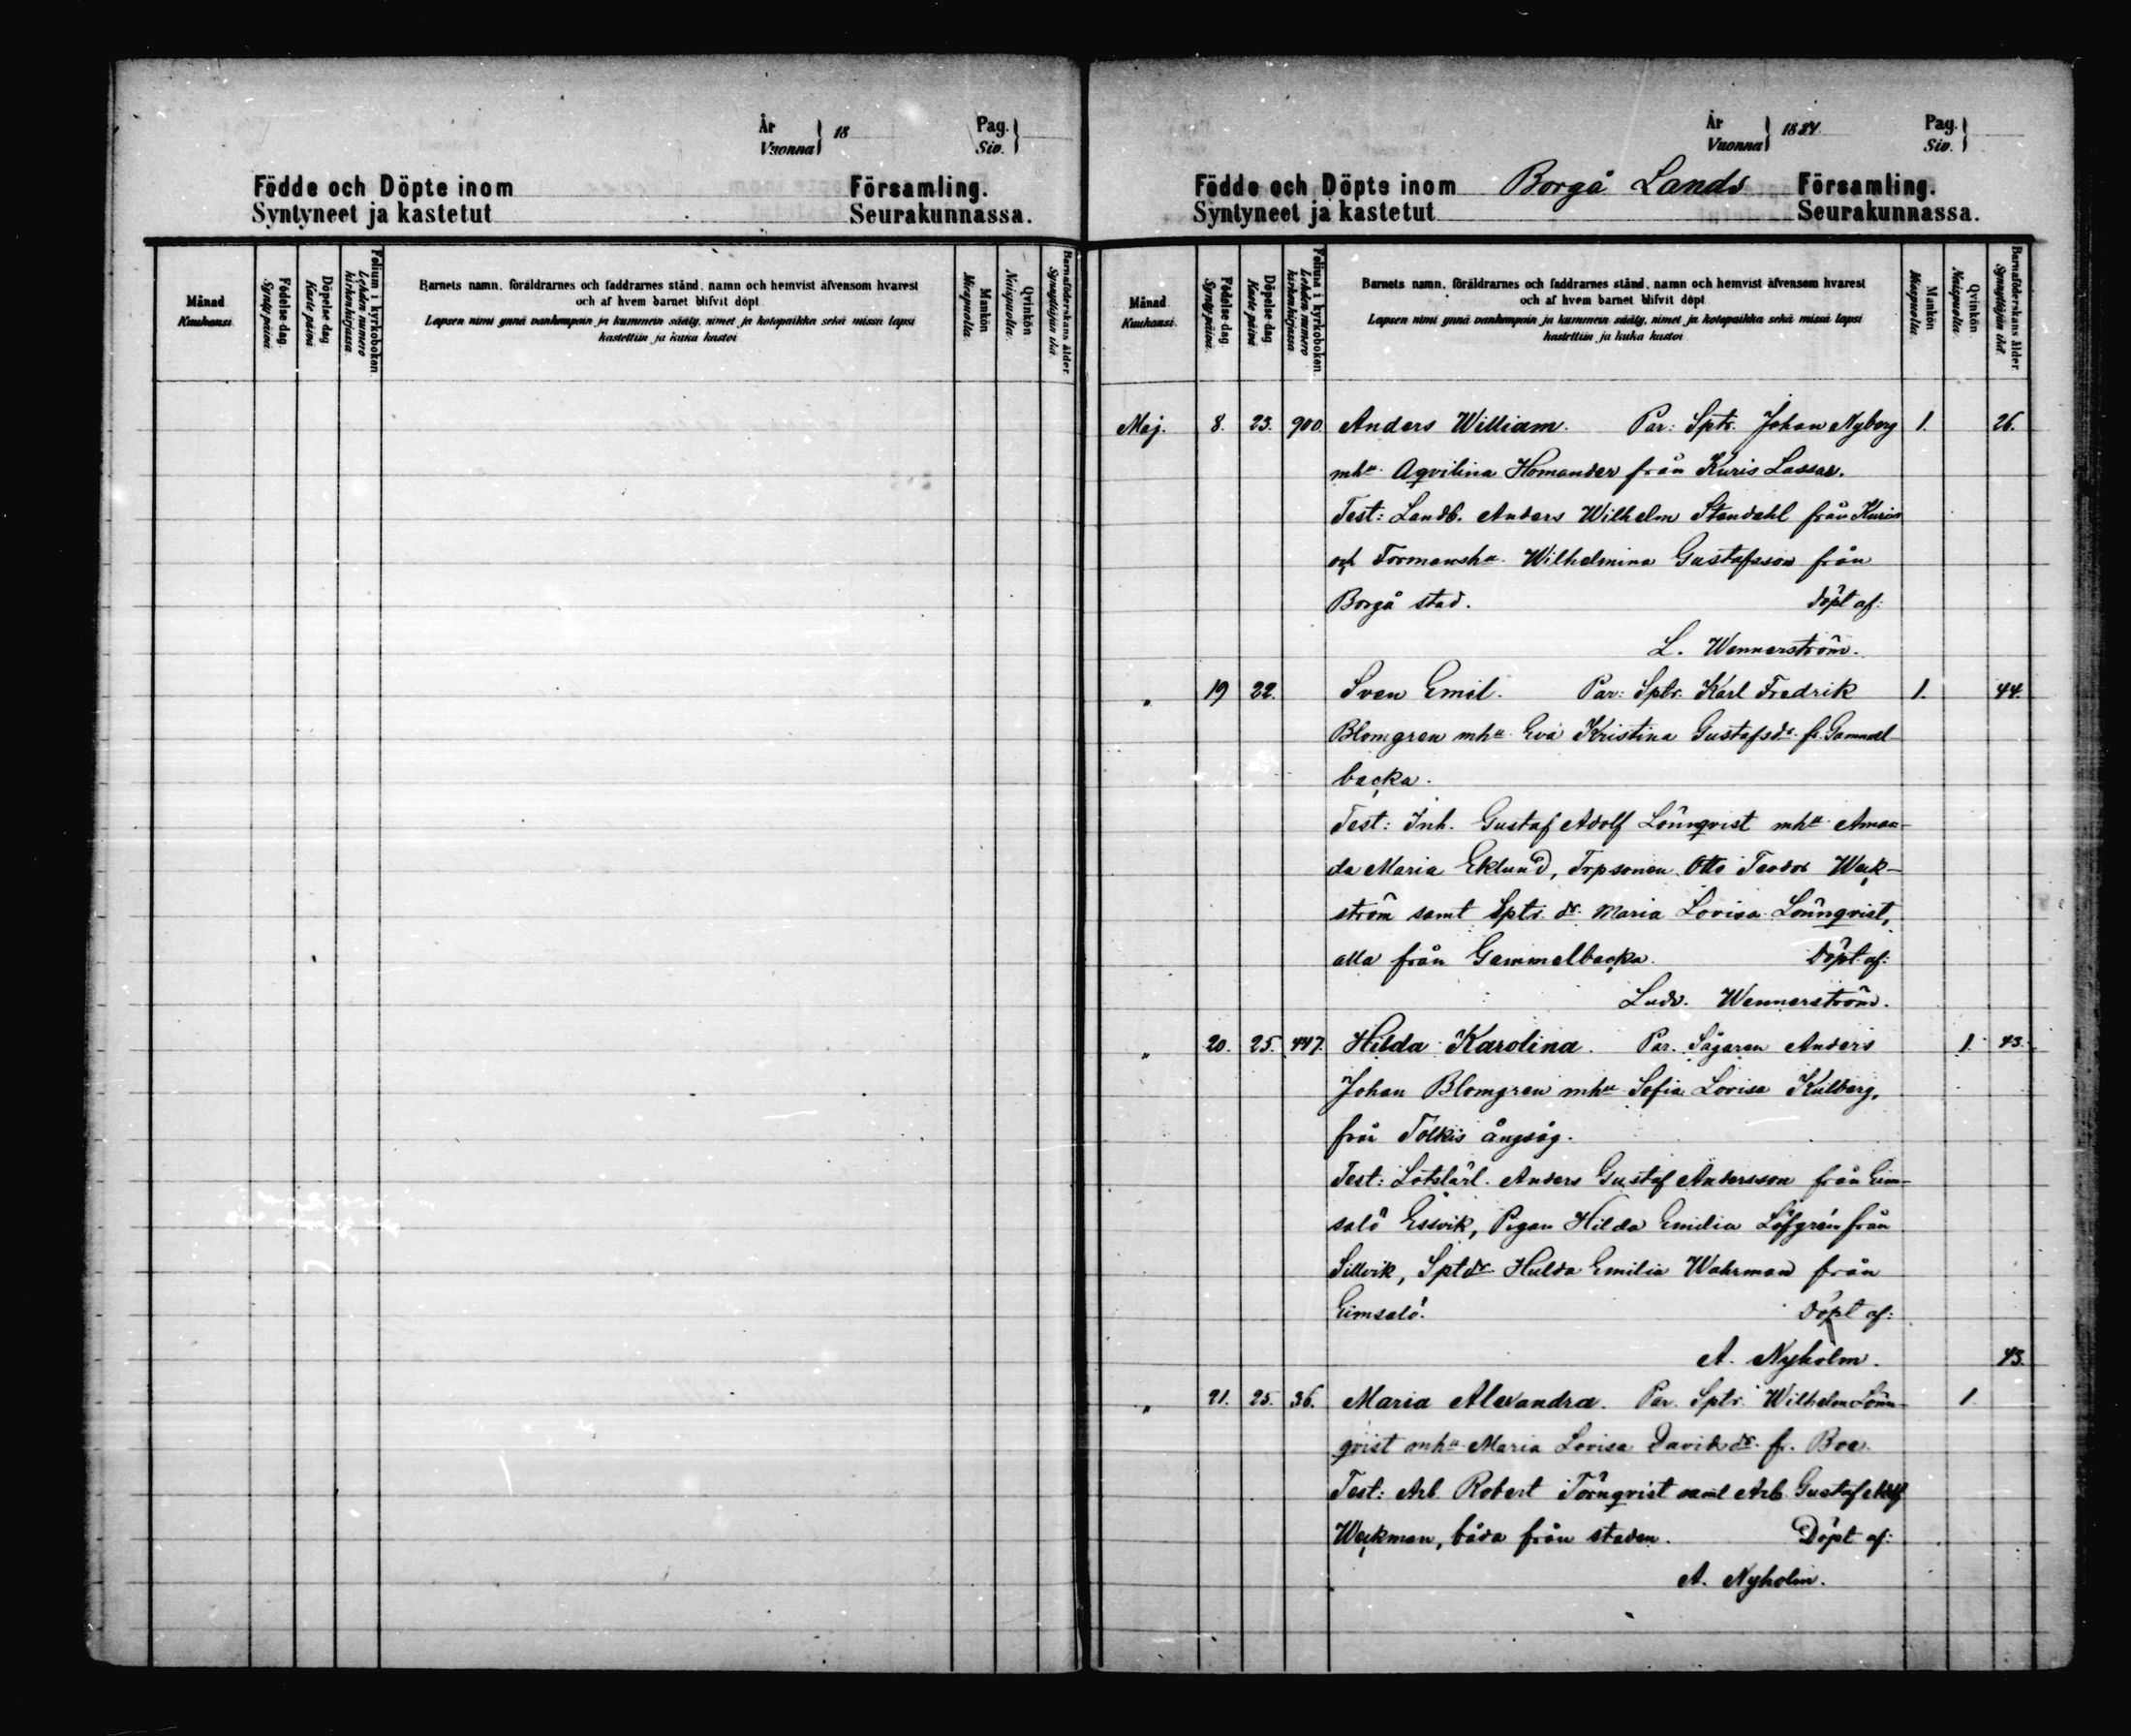 År
Vuonna } 18
Pag.
Siv. }
Födde och Döpte inom Församling.
Syntyneet ja kastetut Seurakunnassa.
Månad
Kuukausi
Födelse dag.
Synty päivä
Döpelse dag
Kaste päivä
Folium i kyrkoboken
Lehden numero kirkonkirjassa
Barnets namn, föräldrarnes och faddrarnes stånd, namn och hemvist äfvensom hvarest
och af hvem barnet blifvit döpt
Lapsen nimi ynnä vanhempain ja kummein sääty, nimet ja kotopaikka sekä missä lapsi
kastettiin ja kuka kastoi
Mankön
Miespuolia.
Qvinkön
Naispuolia.
Barnaföderskans ålder.
Synnyttäjän ikä
År
Vuonna } 1884.
Pag.
Siv. }
Födde och Döpte inom Borgå Lands Församling.
Syntyneet ja kastetut Seurakunnassa.
Månad
Kuukausi.
Födelse dag
Synty päivä.
Döpelse dag
Kaste päivä
Folium i kyrkoboken
Lehden numero kirkonkirjassa
Barnets namn, föräldrarnes och faddrarnes stånd, namn och hemvist äfvensom hvarest
och af hvem barnet blifvit döpt
Lapsen nimi ynnä vanhempain ja kummein sääty, nimet ja kotopaikka sekä missä lapsi
kastettiin ja kuka kastoi
Mankön
Miespuolia.
Qvinkön
Naispuolia.
Barnaföderskans ålder.
Synnyttäjän ikä.
Maj. 8. 23. 900. Anders William. Par: Sptr. Johan Nyberg 1. 26.
mhu Aqvilina Homander från Kuris Lassas.
Test: Landb. Anders Wilhelm Stendahl från Kuris
och Formanshu Wilhelmina Gustafsson från
Borgå stad. döpt af:
L. Wennerström.
" 19 22. Sven Emil. Par: Sptr. Karl Fredrik 1. 44.
Blomgren mhu Eva Kristina Gustafsdr. fr. Gammel-
backa.
Test: Inh. Gustaf Adolf Lönnqvist mhu Aman-
da Maria Eklund, Trpsonen Otto Teodor Weck-
ström samt Sptr. dr. Maria Lovisa Lönnqvist,
alla från Gammelbacka. Döpt af:
Ludv. Wennerström.
" 20. 25. 447. Hilda Karolina. Par. Sågaren Anders 1. 43.
Johan Blomgren mhu Sofia Lovisa Kulberg,
från Tolkis ångsåg.
Test: Lotslärl. Anders Gustaf Andersson från Eim-
salö Essvik, Pigan Hilda Emilia Löfgrén från
Sillvik, Sptdr Hulda Emilia Wahrman från
Eimsalö. Döpt af:
A. Nyholm. 43.
" 21. 25. 36. Maria Alexandra. Par. Sptr. Wilhelm Lönn- 1.
qvist mhu Maria Lovisa Davidsdr. fr. Boe.
Test: Arb. Robert Törnqvist samt Arb. Gustaf Adolf
Weckman, båda från staden. Döpt af:
A. Nyholm.